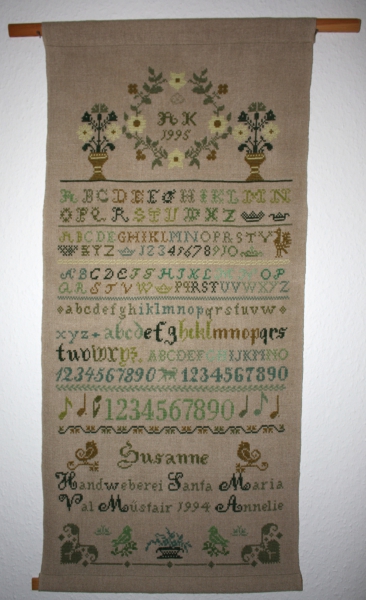 AK
1995
ABCDEFGHIKLMN
OPQRSTUVWXZ
ABCDEGHIKLMNOPRSTXY
XYZ 1234567890
ABCDEFGHIKLMNOP
QRSTVW PQRSTUVWXYZ
abcdefghiklmnopqrstuvw
xyz abcdefghiklmnopqrs
tuvwxyz ABCDEFGHIJKLMNO
1234567890 1234567890
1234567890
Susanne
Handweberei Santa Maria
Val Müstair 1994 Annelie